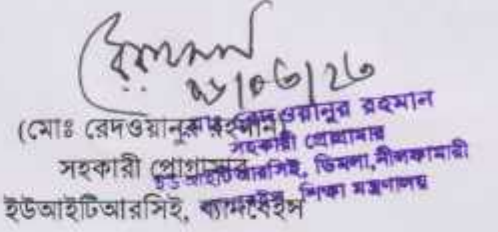 (মোঃ রেদওয়ানুর রহমান)
সহকারী প্রোগ্রামার
ইউআইটিআরসিই, ব্যানবেইস
রেদওয়ানুর রহমান
সহকারী প্রোগ্রামার
ইউআইটিআরসিই, ডিমলা, নীলফামারী
ব্যানবেইস, শিক্ষা মন্ত্রণালয়